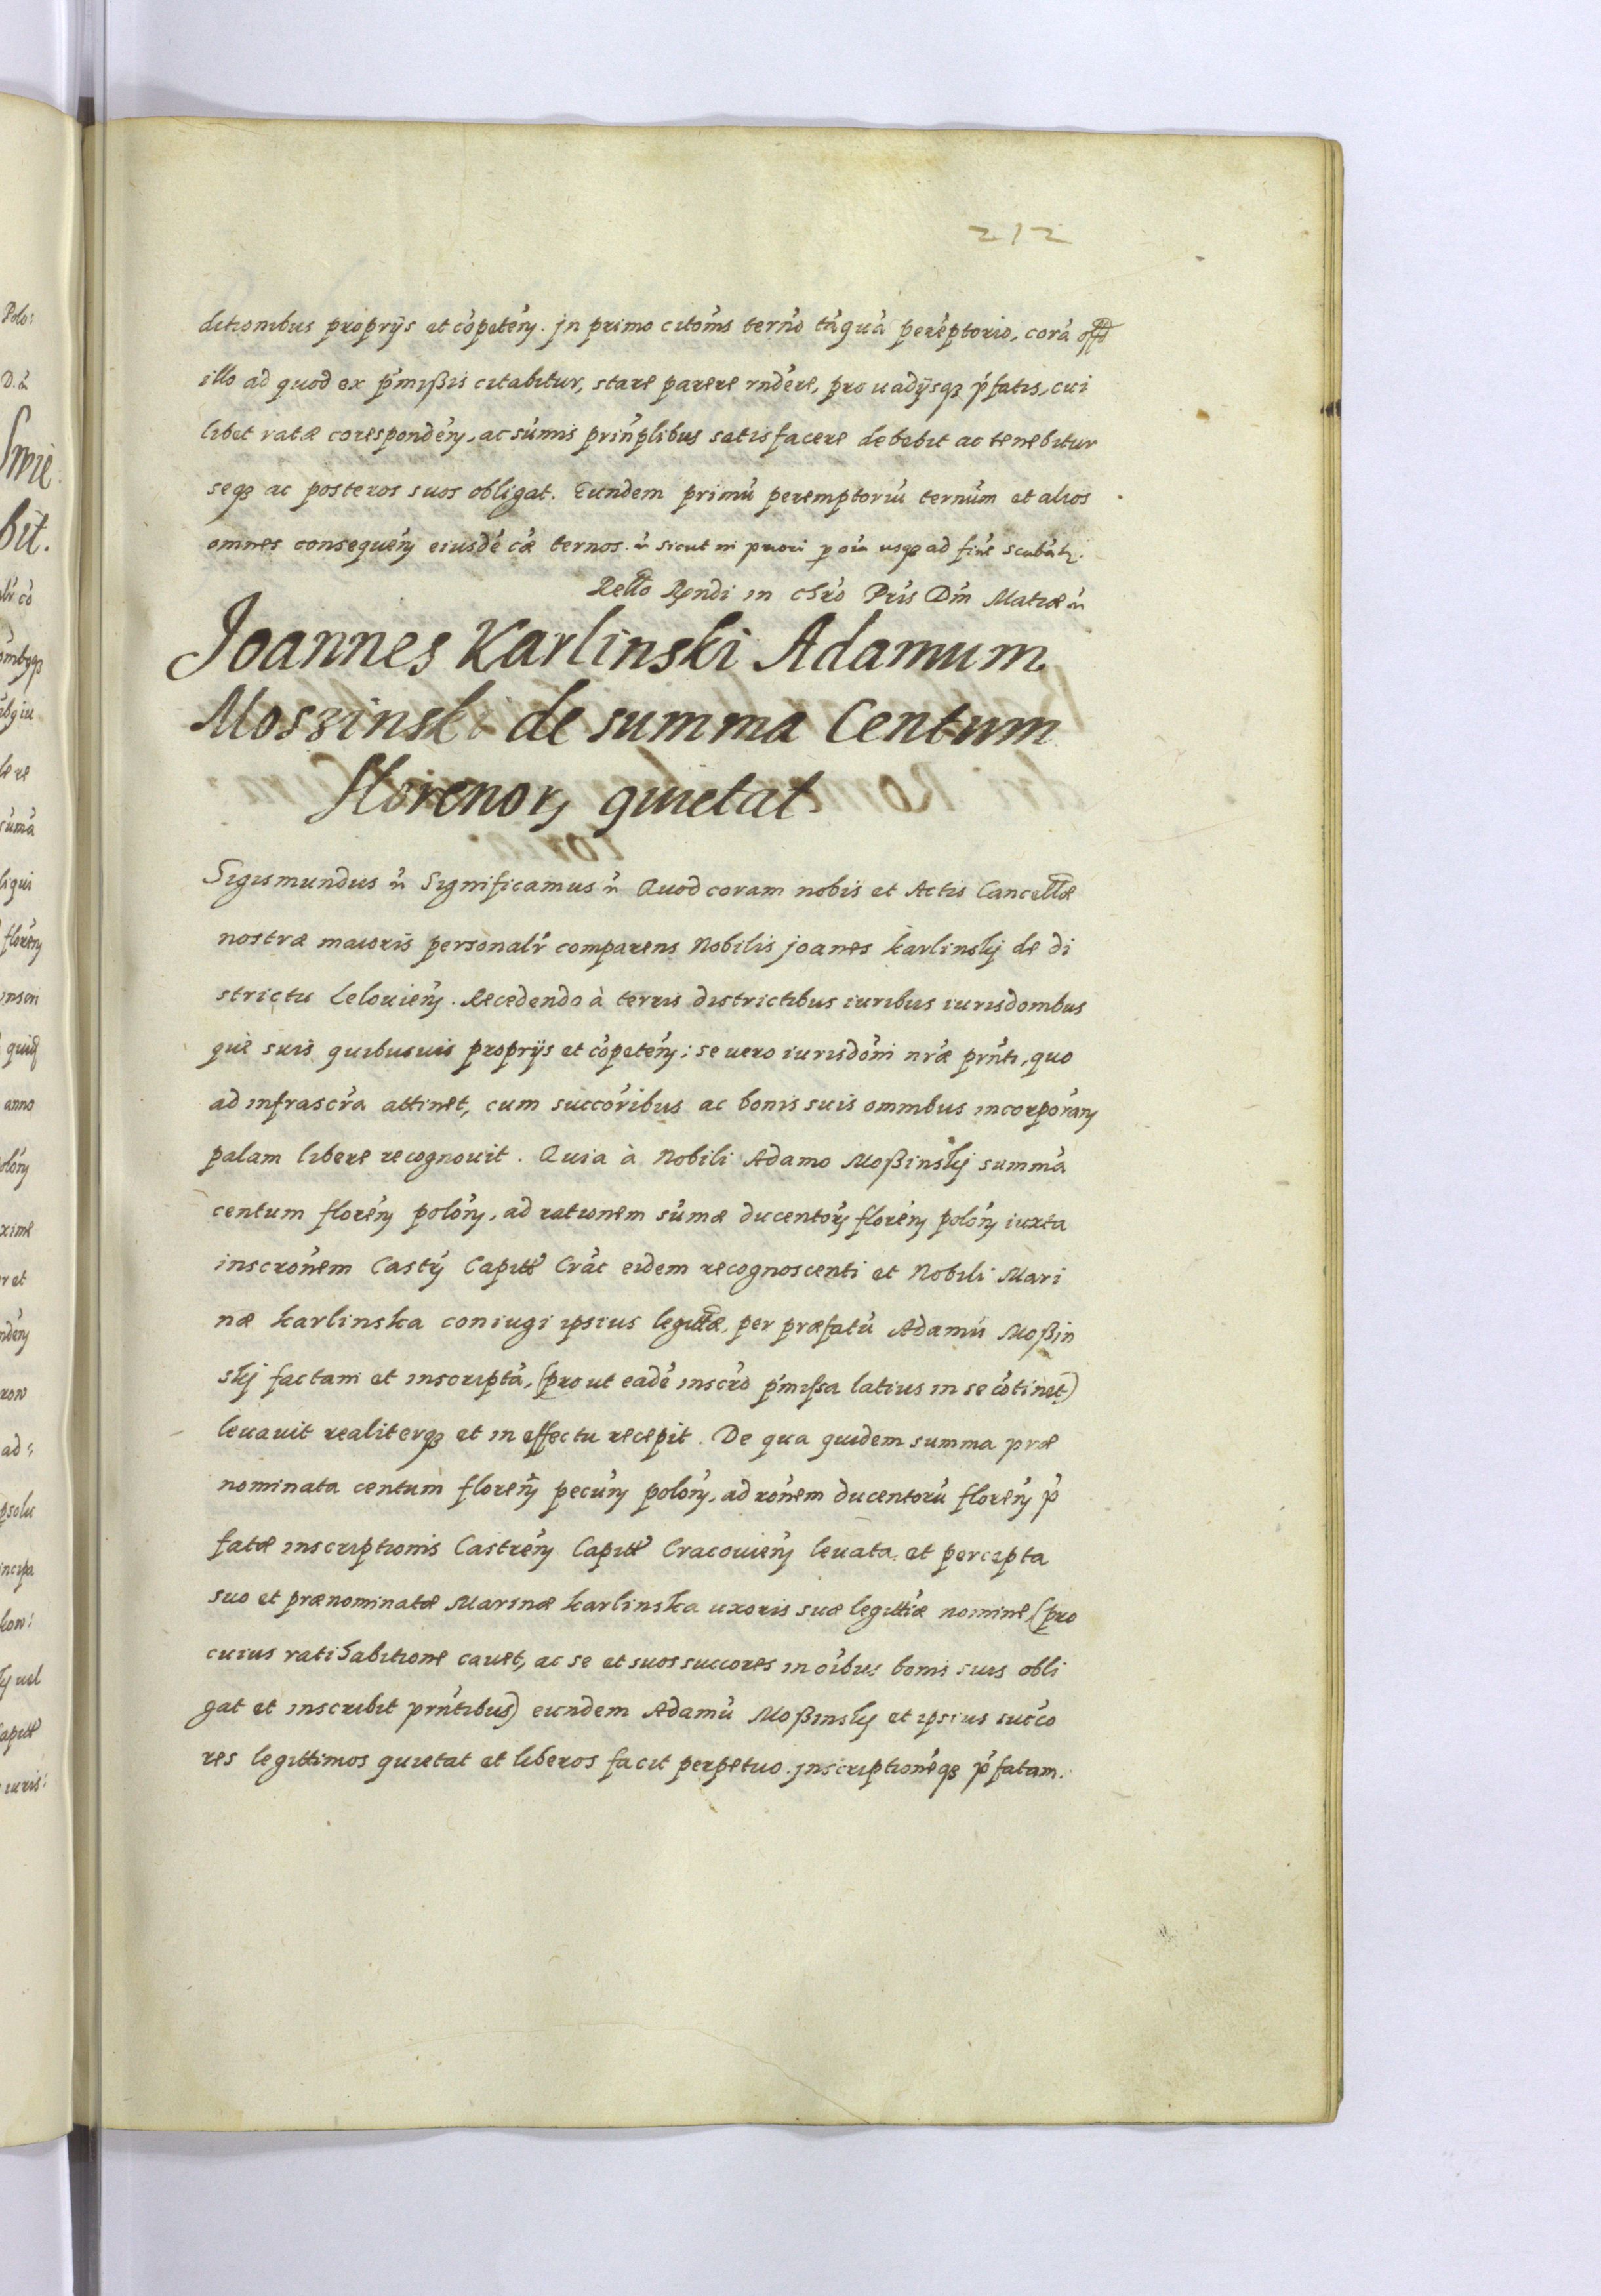 212
ditionibus proprijs et cõpeteñ. jn primo citoñis terño tãquã perẽptorio, corã offo
illo ad quod ex p̃mißis citabitur, stare parere rndẽre, pro uadijsqꝫ p̃fatis, cui
libet ratæ corespondeñ, ac sũmis prinp̃libus satisfacere debebit ac tenebitur
seqꝫ ac posteros suos obligat. Eundem primũ peremptoriũ terñum et alios
omnes consequeñ eiusdẽ cæ̃ ternos. ñ sicut in priori p oĩa usqꝫ ad finẽ scribũtꝫ.
Rello Rndi in chrõ Pris Dm̃ Matiæ ñ
Joannes Karlinski Adamum
Moszinski de summa Centum
florenorꝫ quietat.
Sigismundus ñ Significamus ñ Quod coram nobis et Actis Cancellæ
nostræ maioris personalr̃ comparens Nobilis joanes karlinskj de di
strictu Lelouieñ. Recedendo à terris districtibus iuribus iurisdombus
què suis quibusuis proprijs et cõpeteñ: se uero iurisdoñi nr̃æ prñti, quo
ad infrascrã attinet, cum succoribus ac bonis suis omnibus incorporañ
palam libere recognouit. Quia à Nobili Adamo Moßinskj summã
centum floreñ poloñ, ad rationem sũmæ ducentorꝫ floreñ poloñ iuxta
inscroñem Castrꝫ Capitt Crãc eidem recognoscenti et Nobili Mari
næ karlinska coniugi ipsius legittæ, per præfatũ Adamũ Moßin
skj factam et inscriptã, (prout eadẽ inscrõ p̃missa latius in se cõtinet)
leuauit realiterqꝫ et in effectu recepit. De qua quidem summa præ
nominata centum floreñ pecuñ poloñ, ad roñem ducentorũ floreñ p̃
fatæ inscriptionis Castreñ Capitt Cracouieñ leuata et percepta
suo et prænominatæ Marinæ karlinska uxoris suæ legittiæ nomine (pro
cuius ratihabitione cauet, ac se et suos succores in oĩbus bonis suis obli
gat et inscribit prñtibus) eundem Adamũ Moßinskj et ipsius succo
res legittimos quietat et liberos facit perpetuo. jnscriptioneqꝫ p̃fatam.